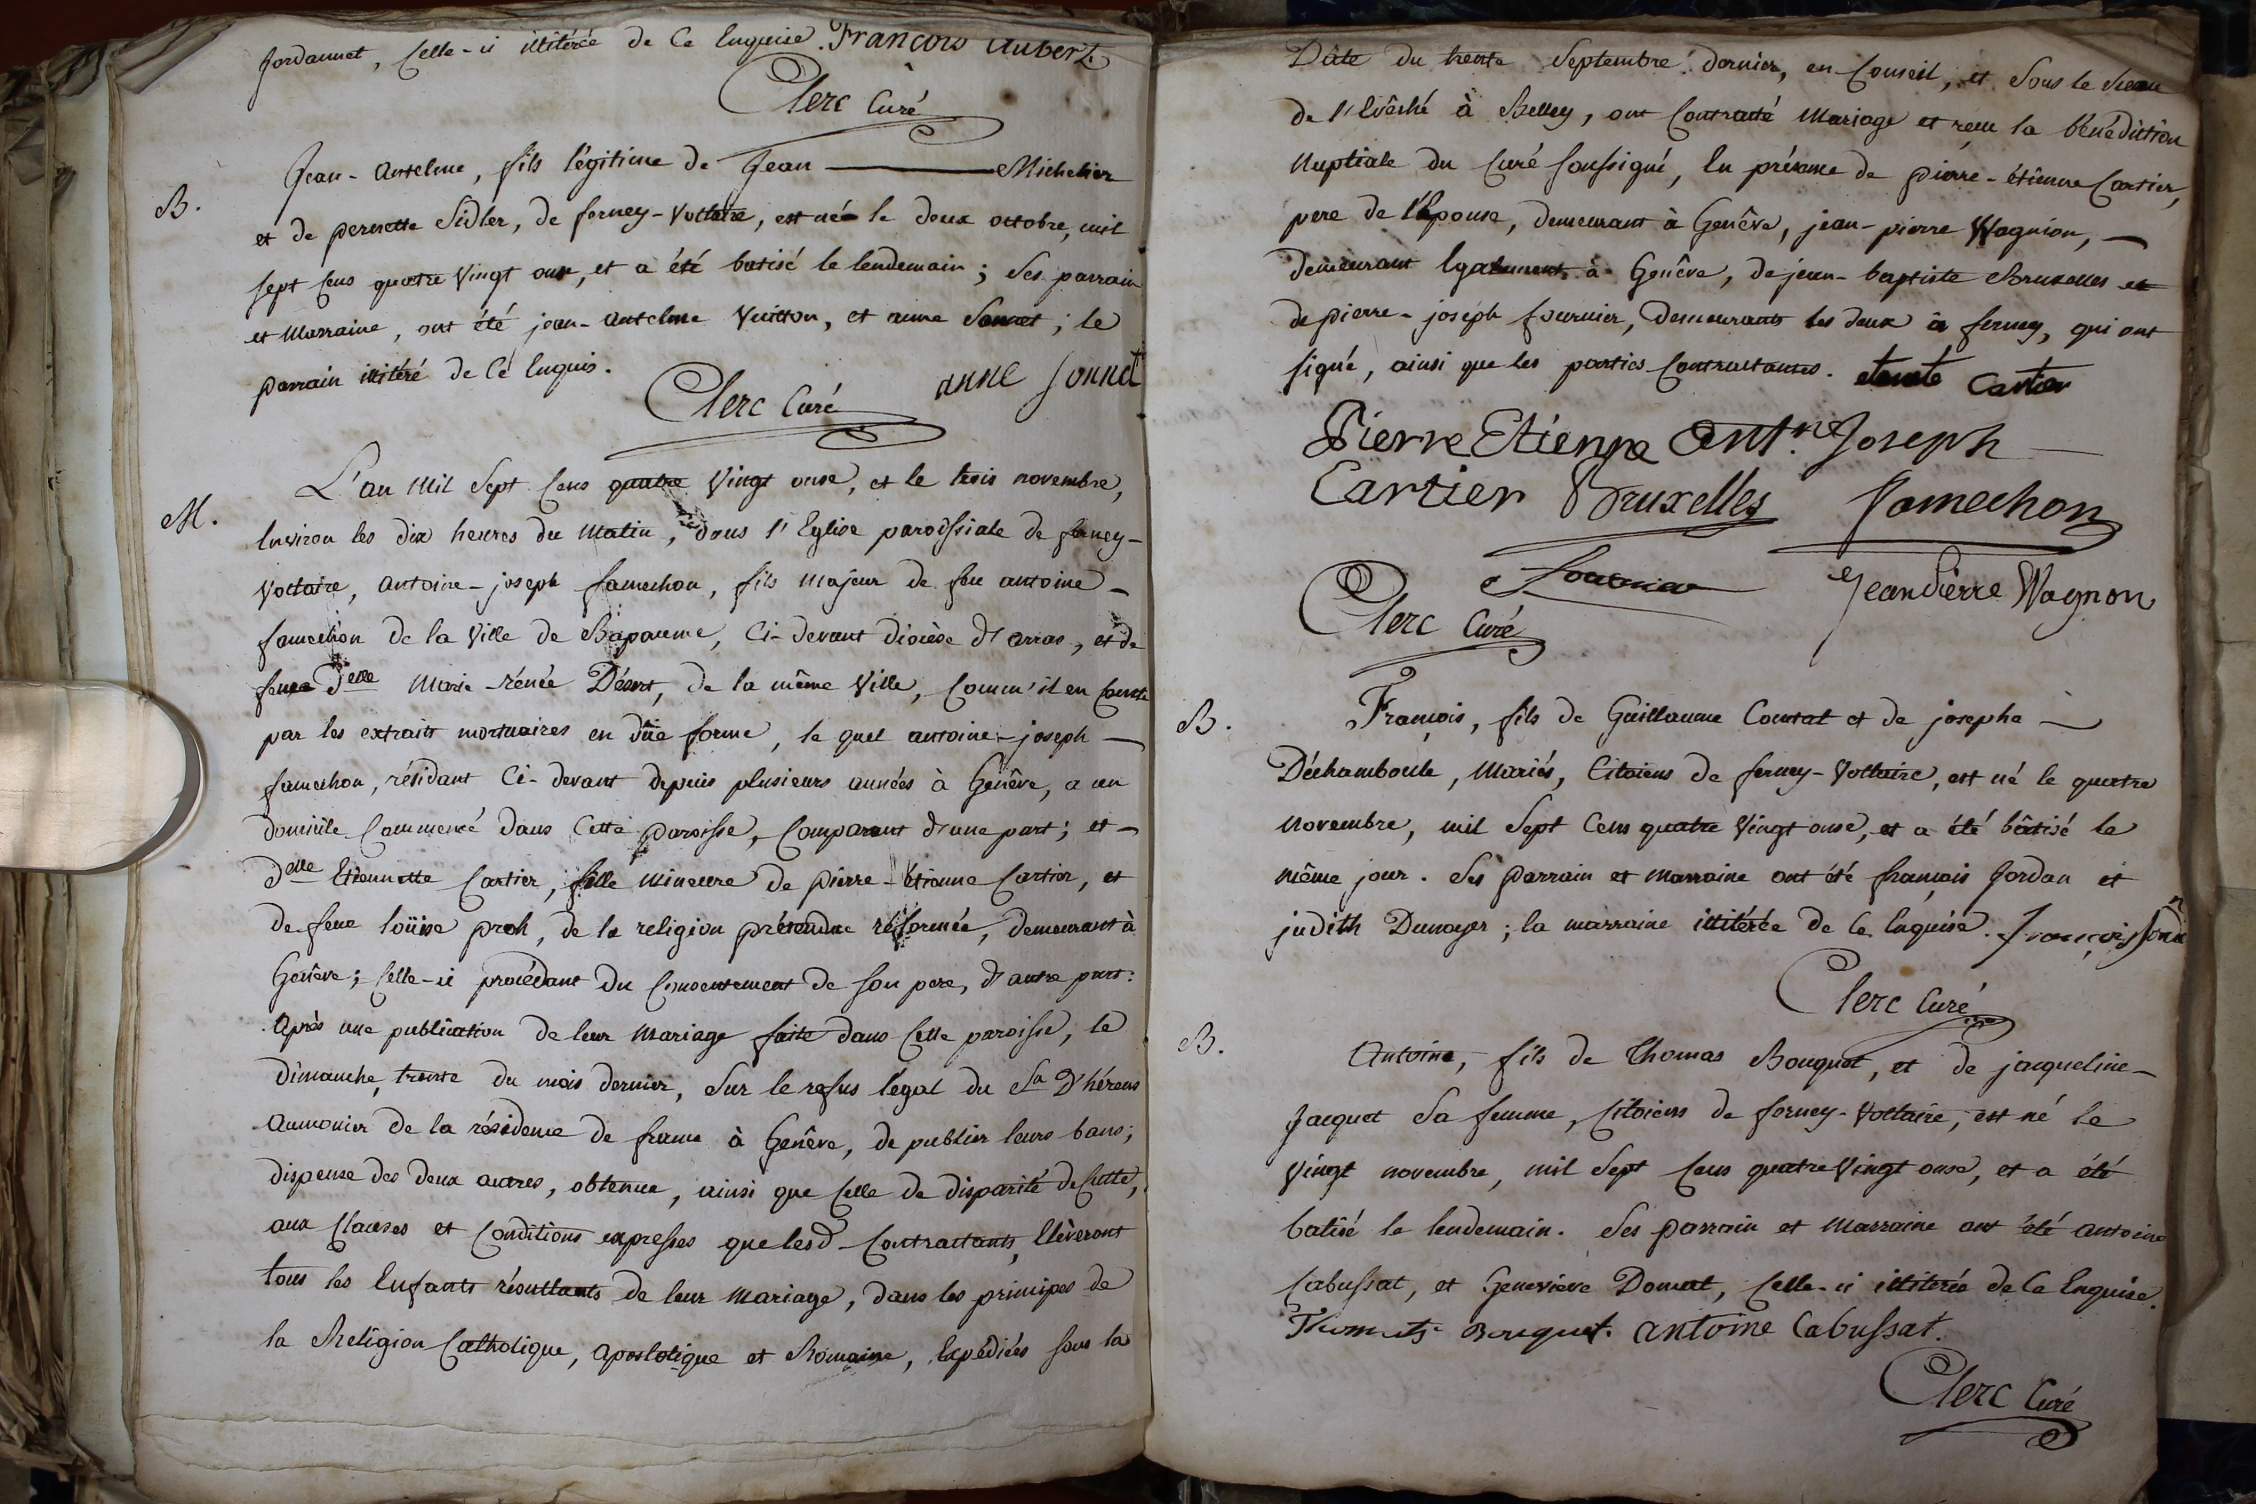 Jordannet, Celle-ci illitérée de Ce Enquise. François Aubert
Clerc Curé
B. Jean-Anselme, fils légitime de Jean Michelier
et de pernette Sidler, de ferney-Voltaire, est né le deux octobre, mil
sept Cens quatre Vingt onse, et a été batisé le lendemain; Ses parrain
et Marraine, ont été jean-anselme Vuitton, et anne Sonnet; le
parrain illitéré de Ce Enquis.
anne Sonnet
Clerc Curé
M. L'an Mil Sept Cens quatre Vingt onse, et le trois novembre,
Environ les dix heures du Matin, dans l'Eglise paroissiale de ferney-
Voltaire, antoine-joseph famechon, fils Majeur de feu antoine
famechon de la Ville de Bapaume, Ci-devant diocèse d'arras, et de
feue Delle Marie-rénée Désert, de la même Ville, Comm'il en Conste
par les extraits mortuaires en düe forme, le quel antoine-joseph
famechon, résidant Ci-devant depuis plusieurs années à Genêve, a un
domicile Commencé dans Cette paroisse, Comparant d'une part; et
Delle Etiennette Cartier, fille Mineure de pierre-étienne Cartier, et
de feue loüise proh, de la religion prétendue réformée, demeurant à
Genêve; Celle-ci procédant du Consentement de Son pere, d'autre part:
Après une publication de leur Mariage faite dans Cette paroisse, le
dimanche, trente du mois dernier, Sur le refus légal du Sr D'hérens
Aumonier de la résidence de france à Genêve, de publier leurs bans;
dispense des deux autres, obtenue, ainsi que Celle de disparité de Culte,
aux Clauses et Conditions expresses que lesd. Contractants, Elèveront
tous les Enfants résultants de leur Mariage, dans les principes de
la Religion Catholique, apostolique et Romaine, Expédiées sous la
Dâte du trente Septembre dernier, en Conseil, et Sous le Sceau
de l'Evêché à Belley, ont Contracté Mariage et reçu la bénédiction
Nuptiale du Curé Soussigné, En présence de pierre-étienne Cartier,
pere de l'Epouse, demeurant à Genêve, jean-pierre Wagnion,
demeurant Egalement à Genêve, de jean-baptiste Bruxelles et
de pierre-joseph fournier, demeurants les deux à ferney, qui ont
signé, ainsi que les parties Contractantes. Cartier
Pierre Etienne Ant.ne Joseph
Cartier Bruxelles famechon
Fournier Jean Pierre Wagnon
Clerc Curé
B. François, fils de Guillaume Contat et de josephe
Déchamboule, Mariés, Citoiens de ferney-Voltaire, est né le quatre
Novembre, mil Sept Cens quatre Vingt onse, et a été bâtisé le
même jour. Ses parrain et Marraine ont été françois Jordan et
judith Dunoyer; la marraine illitérée de Ce Enquise. François Jordan
Clerc Curé
B. Antoine, fils de Thomas Bouquet, et de jacqueline
Jacquet Sa femme, Citoiens de ferney-Voltaire, est né le
Vingt novembre, mil Sept Cens quatre Vingt onse, et a été
batisé le lendemain. Ses parrain et Marraine ont été antoine
Cabussat, et Genevieve Domat, Celle-ci illitérée de Ce Enquise.
Thomas Bouquet. antoine Cabussat.
Clerc Curé